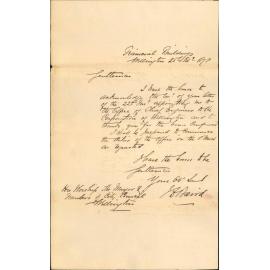 Provincial Buildings
Wellington
Gentlemen
I have the honor to
acknowledge the rec't of your letter
of the 22nd inst. appointing me to
the Office of Chief Engineer to the
Corporation of Wellington and to
thank you for the same
I shall be prepared to commence
the duties of the office on the
as
I have the honor to be
Gentlemen
Your Ob Sert
J D Baird
His Worship the Mayor &
Members of City Council
Wellington